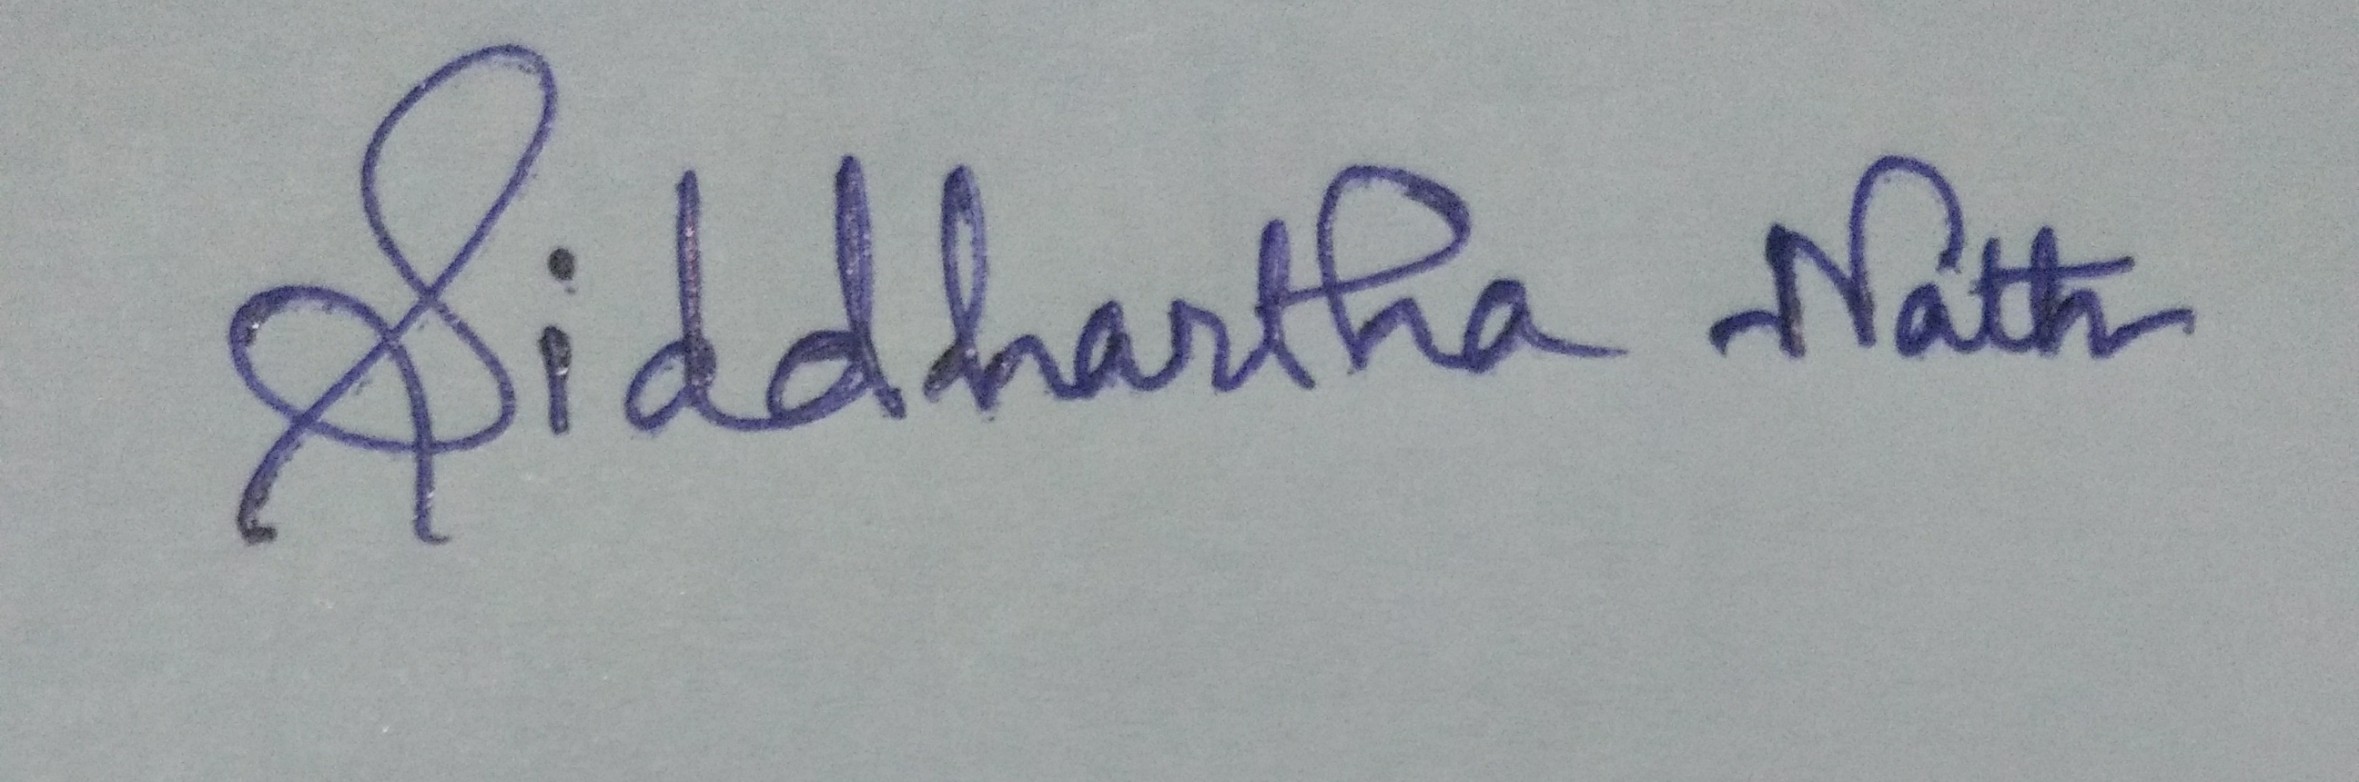 Siddhartha Nath